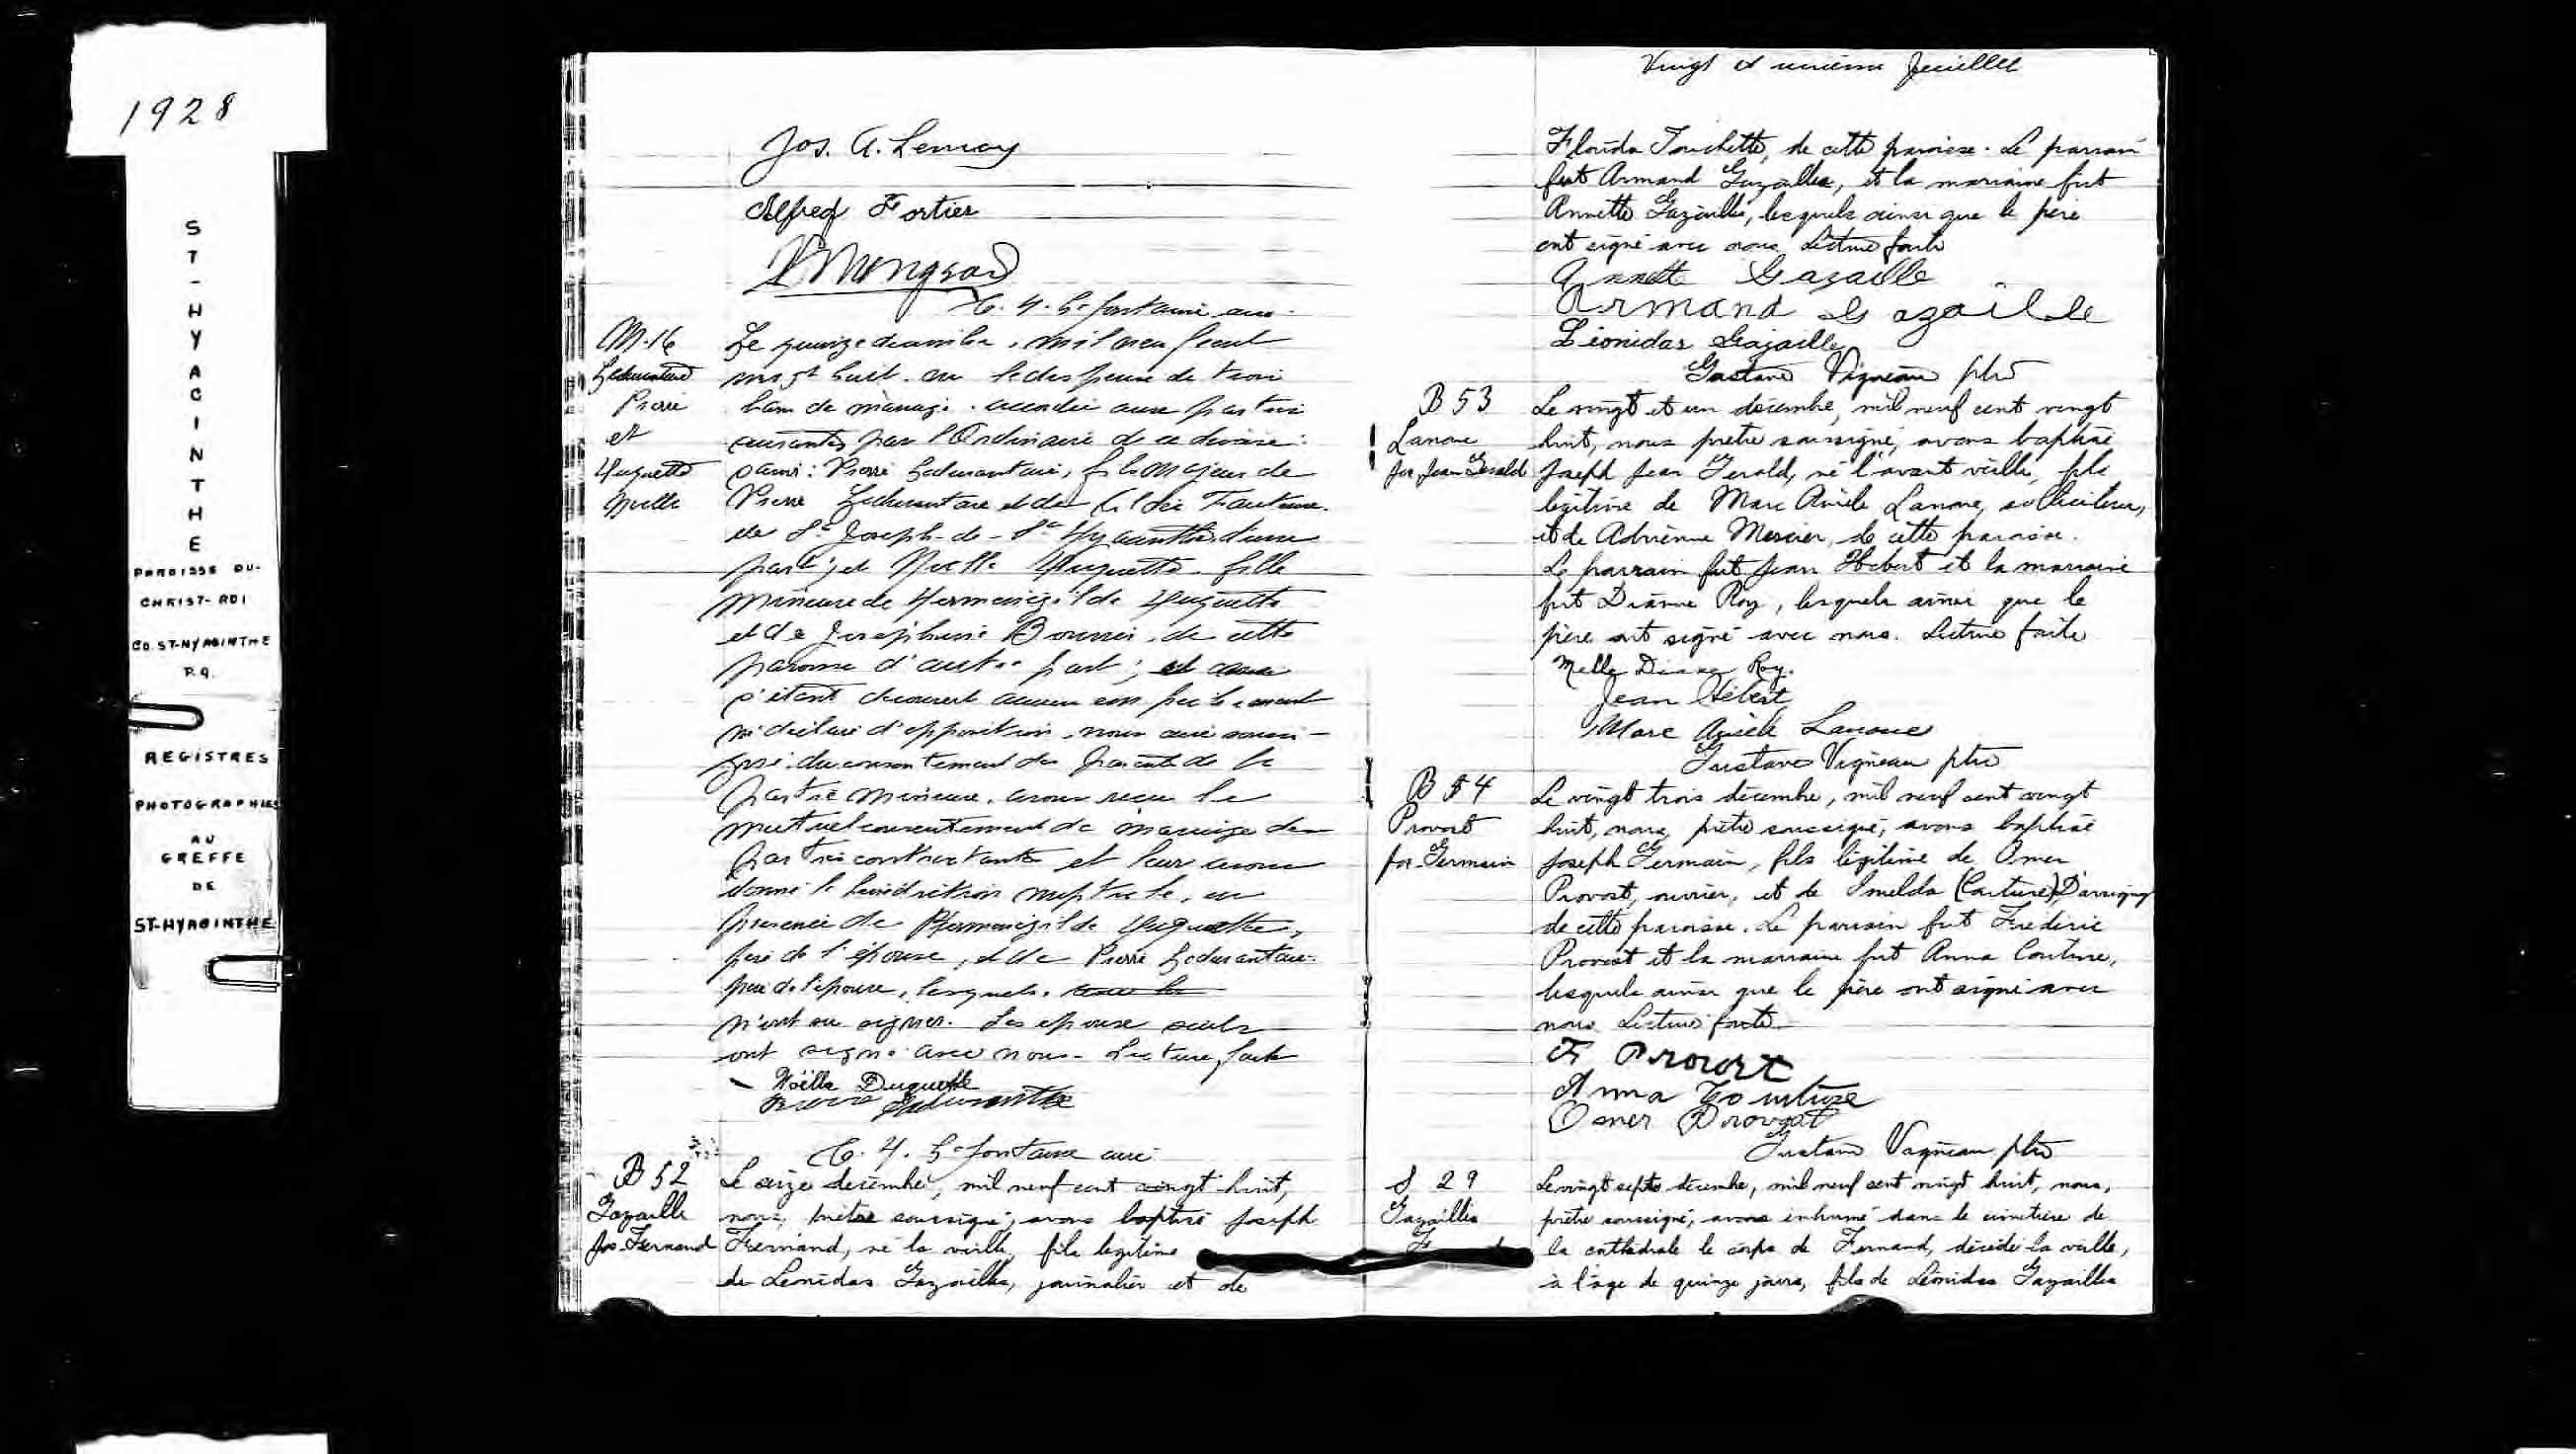 1928
ST-HYACINTHE
PAROISSE DU-
CHRIST-ROI
CO. ST-HYACINTHE
P.Q.
REGISTRES
PHOTOGRAPHIÉS
AU
GREFFE
DE
ST-HYACINTHE
Jos. A. Lemay
Alfred Fortier
M-16
et
Le quinze décembre, mil neuf cent
vingt huit, vu la dispense de trois
bans de mariage accordée aux parties
par l'Ordinaire de ce diocèse:
Pierre fils majeur de
Pierre et de
de St Joseph-de-St Hyacinthe d'une
part; et fille
mineure de
et de de cette
paroisse d'autre part; et
s'étant découvert aucun empêchement
ni déclaré d'opposition, nous curé soussi-
gné, du consentement des parents de la
partie mineure, avons reçu le
mutuel consentement de mariage des
parties contractantes et leur avons
donné la bénédiction nuptiale, en
présence de
père de l'épouse, et de Pierre
père de l'époux, lesquels
n'ont su signer. Les époux seuls
ont signé avec nous. Lecture faite
Noëlla Duquette
curé
B 52
Gazaille
Jos-Fernand
Le seize décembre, mil neuf cent vingt-huit,
nous, prêtre soussigné, avons baptisé Joseph
Fernand, né la veille, fils légitime
de Léonidas Gazaille, journalier et de
Vingt et unième feuillet
Florida Touchette, de cette paroisse. Le parrain
fut Armand Gazaille, et la marraine fut
Annette Gazaille, lesquels ainsi que le père
ont signé avec nous. Lecture faite
Annette Gazaille
Armand Gazaille
Léonidas Gazaille
Gustave Vigneau ptre
B 53
Lanoue
Jos Jean Gerald
Le vingt et un décembre, mil neuf cent vingt
huit, nous prêtre soussigné, avons baptisé
Joseph Jean Gerald, né l'avant veille, fils
légitime de Marc Lanoue, solliciteur,
et de Adrienne Mercier, de cette paroisse.
Le parrain fut Jean Hébert et la marraine
fut Diane Roy, lesquels ainsi que le
père ont signé avec nous. Lecture faite
Melle Diane Roy.
Jean Hébert
Marc Lanoue
Gustave Vigneau ptre
B 54
Provost
Jos-Germain
Le vingt trois décembre, mil neuf cent vingt
huit, nous, prêtre soussigné, avons baptisé
Joseph Germain, fils légitime de Omer
Provost, ouvrier, et de Imelda (Couture)
de cette paroisse. Le parrain fut Frédéric
Provost et la marraine fut Anna Couture,
lesquels ainsi que le père ont signé avec
nous. Lecture faite.
F Provost
Anna Couture
Omer Provost
Gustave Vigneau ptre
S 29
Gazaille
Le vingt sept décembre, mil neuf cent vingt huit, nous,
prêtre soussigné, avons inhumé dans le cimetière de
la cathédrale le corps de Fernand, décédé la veille,
à l'âge de quinze jours, fils de Léonidas Gazaille